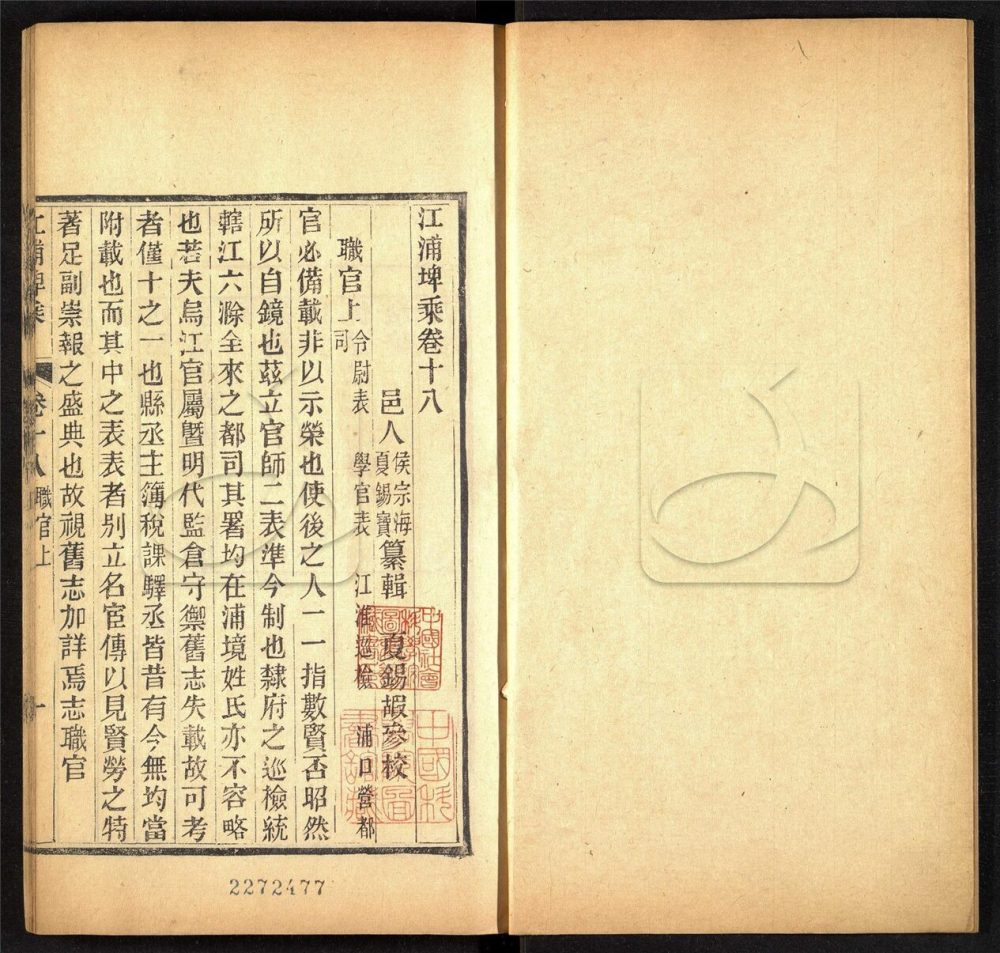 江浦埤乘卷十八
邑人侯宗海夏錫寶纂輯　夏錫嘏參校
職官上令尉表　學官表　江淮巡檢　浦口營都司
官必備載非以示榮也使後之人一一指數賢否昭然
所以自鏡也茲立官師二表準今制也隸府之巡檢統
轄江六滁全來之都司其署均在浦境姓氏亦不容略
也若夫烏江官屬暨明代監倉守禦舊志失載故可考
者僅十之一也縣丞主簿稅課驛丞皆昔有今無均當
附載也而其中之表表者別立名宦傳以見賢勞之特
著足副崇報之盛典也故視舊志加詳焉志職官
江浦埤乘　卷十八　職官上　一
2272477